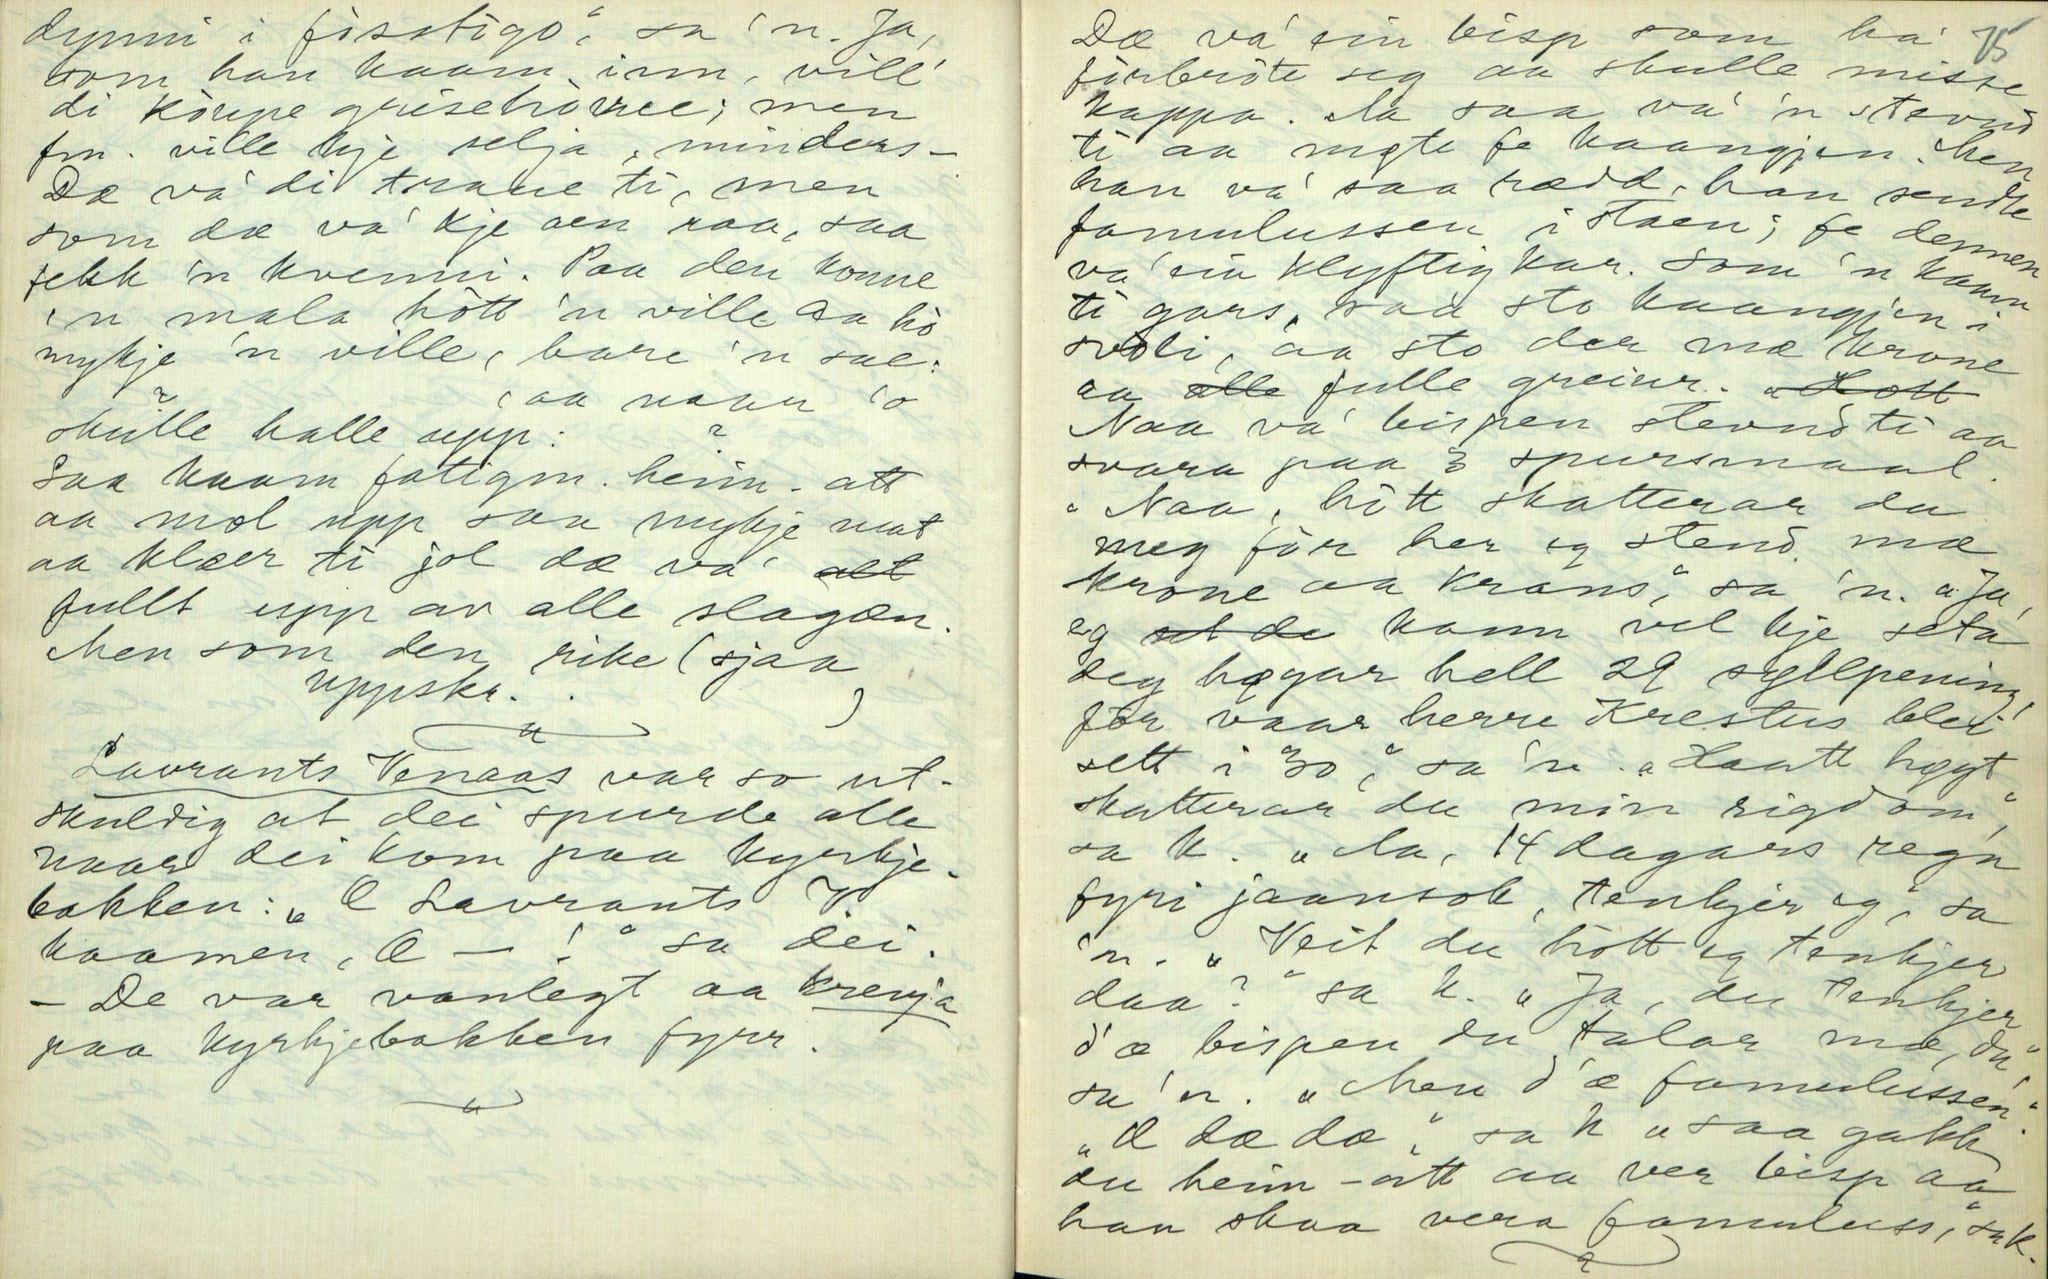 dynni i fisstigo", sa 'n. Ja,
som han kaam inn, vill'
di köupe grisehövve; men
fm. ville kje selja, minders-
Dæ va' di traae ti, men
som dæ va' kje aen raa, saa
fekk 'n kvenni. Paa den konne
'n mala hött 'n ville aa hö
mykje 'n ville, bare 'n sae:
, aa naar 'o
skulle halle upp:
Saa kaam fatigm. heim-att
aa mol upp saa mykje mat
aa klæer ti jol dæ va' alt
fullt upp av alle slagæn.
Men som den rike (sjaa
uppskr. )
Lavrants Venaas var so ut-
skuldig at dei spurde alle
naar dei kom paa kyrkje-
bakken: "Æ Lavrants V
kaamen, Æ — !" sa dei.
- De var vanlegt aa krevja
paa kyrkjebakken fyrr.
75
Dæ va' ein bisp som ha'
förbröte seg aa skulle misse
kappa. Aa saa va' 'n stevnd
ti aa møte fe kaangjen. Men
han va' saa rædd, han sendte
famulussen i staen; fe dennen
va' ein klyftig kar. Som 'n kaam
ti gars, saa sto kaangjen i
svoli, aa sto der mæ krone
aa alle fulle greiur. "Hott
Naa va' bispen stevnd ti aa
svara paa 3 spursmaal.
"Naa, hött skatterar du
meg för her eg stend mæ
krone aa krans", sa 'n. "Ja,
eg kann vel kje seta
deg høgar hell 29 syllpening,
för vaar herre Krestus blei
sett i 30", sa 'n. "Haatt høgt
skatterar du min rigdom",
sa k. "Aa, 14 dagars regn
fyri jaansok, tenkjer eg", sa
'n. "Veit du hött eg tenkjer
daa?" sa k. "Ja, du tenkjer
d'æ bispen du talar mæ, du",
sa 'n. "Men d'æ famulussen".
"Æ dæ dæ", sa k "saa gakk
du heim-att aa ver bisp aa
han skaa vera famuluss", sa k.